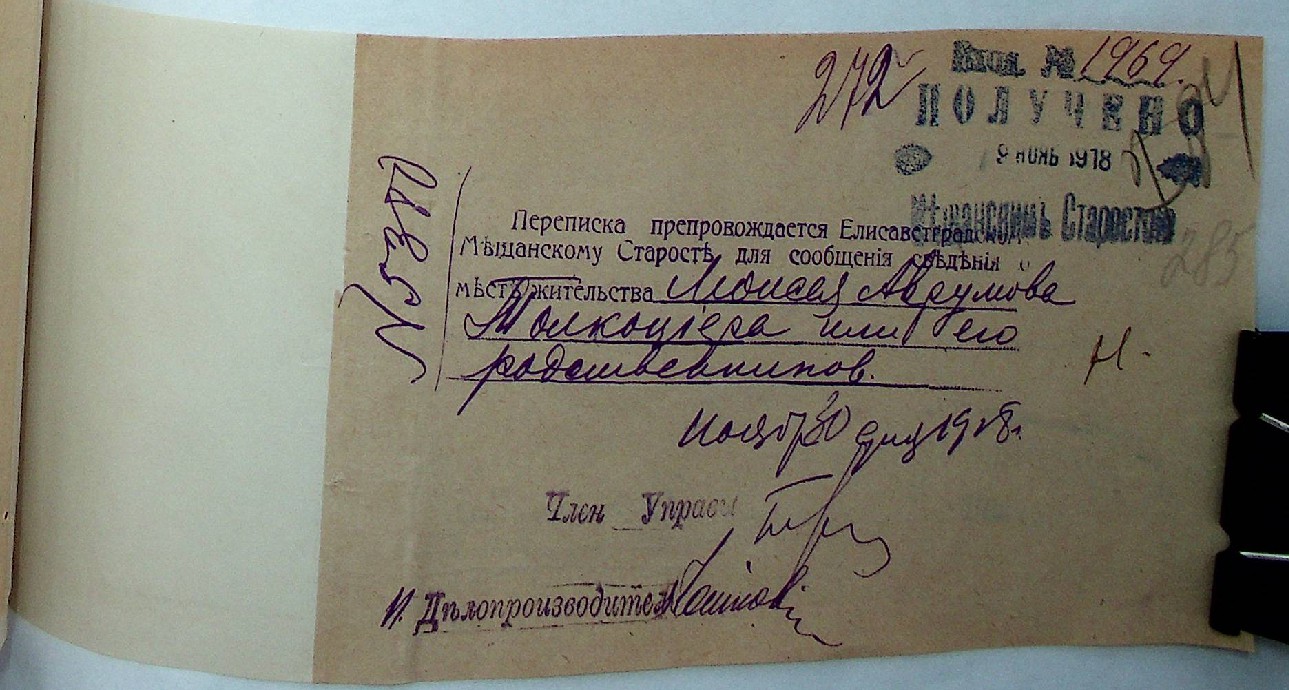 272
Вход. № 1969.
ПОЛУЧЕНО
9 1918
Мѣщанскимъ Старостою
285
№ 5380
Переписка препровождается Елисаветградском
Мѣщанскому Старостѣ для сообщенія свѣдѣнія о
мѣстѣ жительства Моисея Аврумова
или его
родственников.
30 дня 1918г.
Член Управы
И. Дѣлопроизводитель